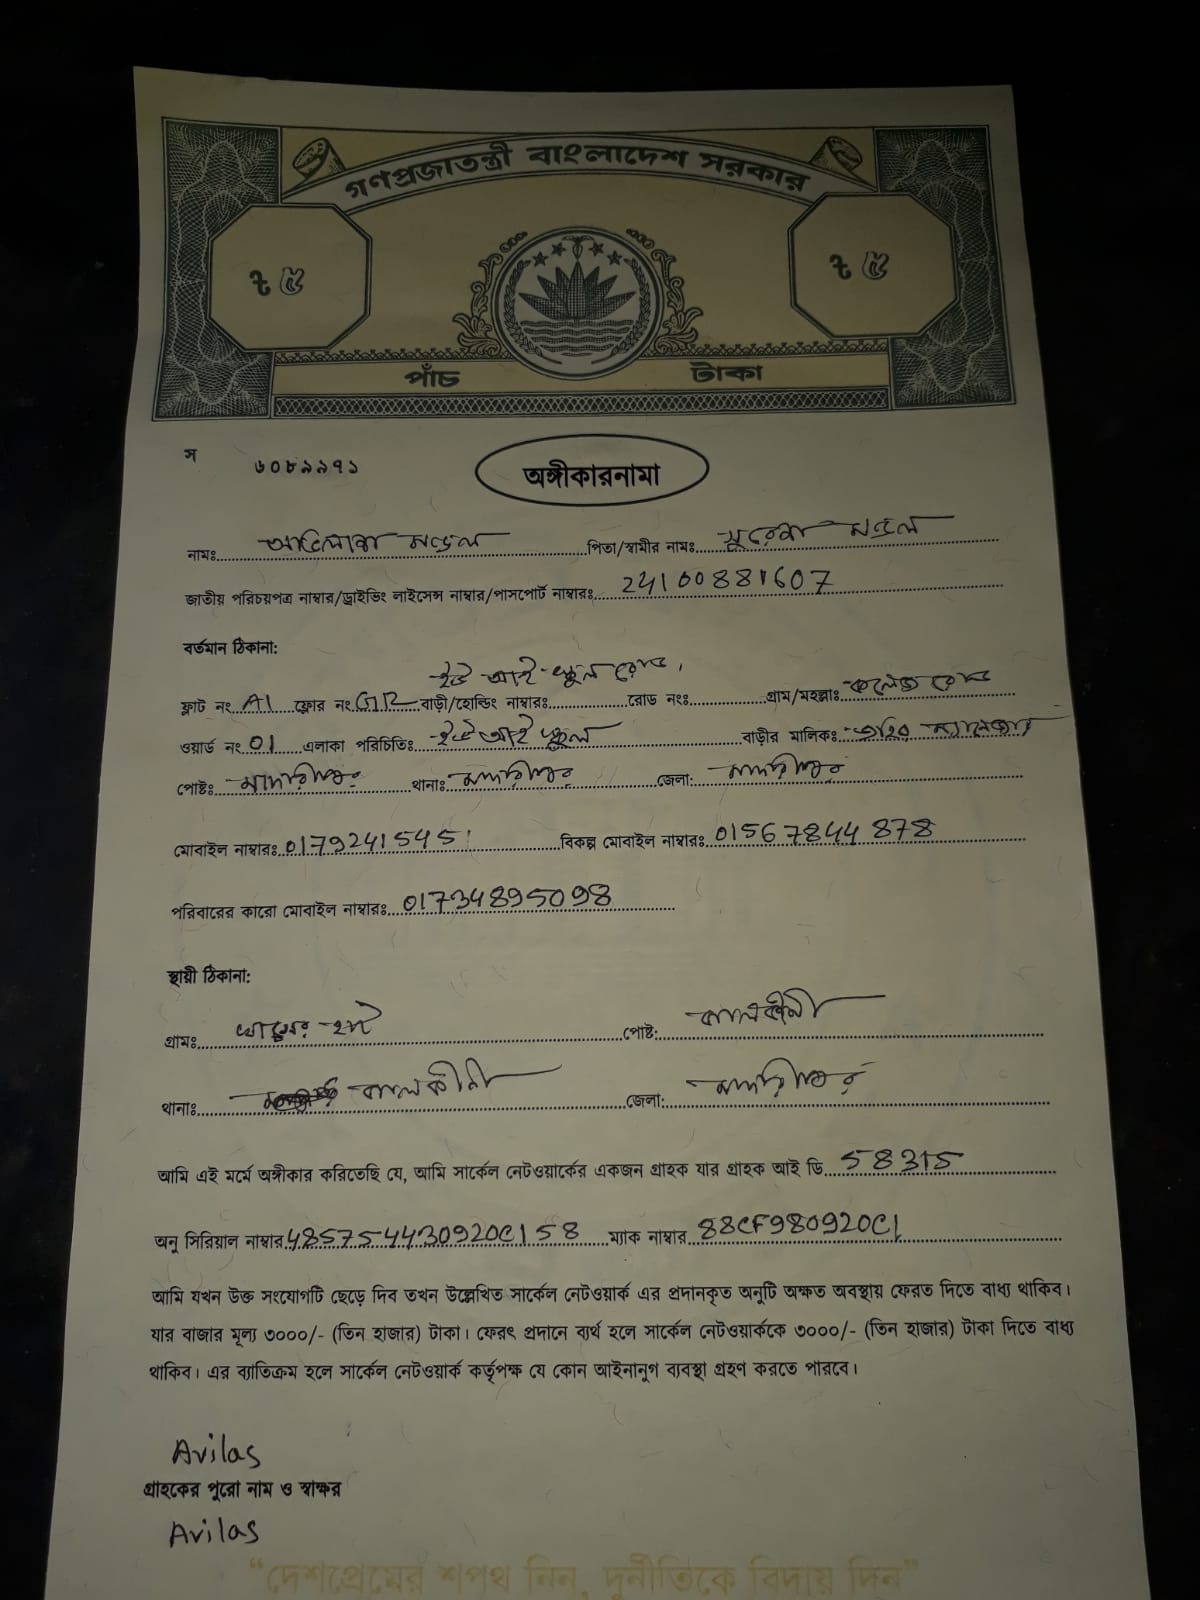 গণপ্রজাতন্ত্রী বাংলাদেশ সরকার
৳ ৫ ৳ ৫
পাঁচ টাকা
স ৬০৮৯৯৭১
অঙ্গীকারনামা
নামঃ অভিলাষ মন্ডল পিতা/স্বামীর নামঃ সুরেশ মন্ডল
জাতীয় পরিচয়পত্র নাম্বার/ড্রাইভিং লাইসেন্স নাম্বার/পাসপোর্ট নাম্বারঃ 24100881607
বর্তমান ঠিকানা:
ইউ আই স্কুল রোড,
ফ্লাট নং A1 ফ্লোর নং GR বাড়ী/হোল্ডিং নাম্বারঃ রোড নংঃ গ্রাম/মহল্লাঃ কলেজ রোড
ওয়ার্ড নং 01 এলাকা পরিচিতিঃ ইউ আই স্কুল বাড়ীর মালিকঃ
পোষ্টঃ মাদারীপুর থানাঃ মাদারীপুর জেলা: মাদারীপুর
মোবাইল নাম্বারঃ 01792415451 বিকল্প মোবাইল নাম্বারঃ 01567844878
পরিবারের কারো মোবাইল নাম্বারঃ 01734895098
স্থায়ী ঠিকানা:
গ্রামঃ পোষ্ট: কালকীনী
থানাঃ কালকীনী জেলা: মাদারীপুর
আমি এই মর্মে অঙ্গীকার করিতেছি যে, আমি সার্কেল নেটওয়ার্কের একজন গ্রাহক যার গ্রাহক আই ডি 58315
অনু সিরিয়াল নাম্বার 485754430920C158 ম্যাক নাম্বার 88CF980920C1
আমি যখন উক্ত সংযোগটি ছেড়ে দিব তখন উল্লেখিত সার্কেল নেটওয়ার্ক এর প্রদানকৃত অনুটি অক্ষত অবস্থায় ফেরত দিতে বাধ্য থাকিব।
যার বাজার মূল্য ৩০০০/- (তিন হাজার) টাকা। ফেরৎ প্রদানে ব্যর্থ হলে সার্কেল নেটওয়ার্ককে ৩০০০/- (তিন হাজার) টাকা দিতে বাধ্য
থাকিব। এর ব্যাতিক্রম হলে সার্কেল নেটওয়ার্ক কর্তৃপক্ষ যে কোন আইনানুগ ব্যবস্থা গ্রহণ করতে পারবে।
Avilas
গ্রাহকের পুরো নাম ও স্বাক্ষর
Avilas
“দেশপ্রেমের শপথ নিন, দুর্নীতিকে বিদায় দিন”